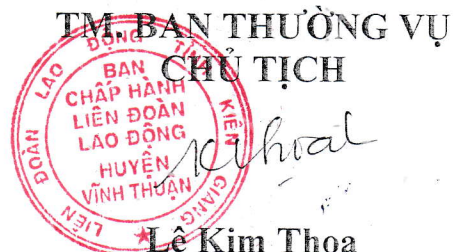 TM. BAN THƯỜNG VỤ
CHỦ TỊCH
LIÊN ĐOÀN LAO ĐỘNG TỈNH KIÊN GIANG
BAN
CHẤP HÀNH
LIÊN ĐOÀN
LAO ĐỘNG
HUYỆN
VĨNH THUẬN
Lê Kim Thoa